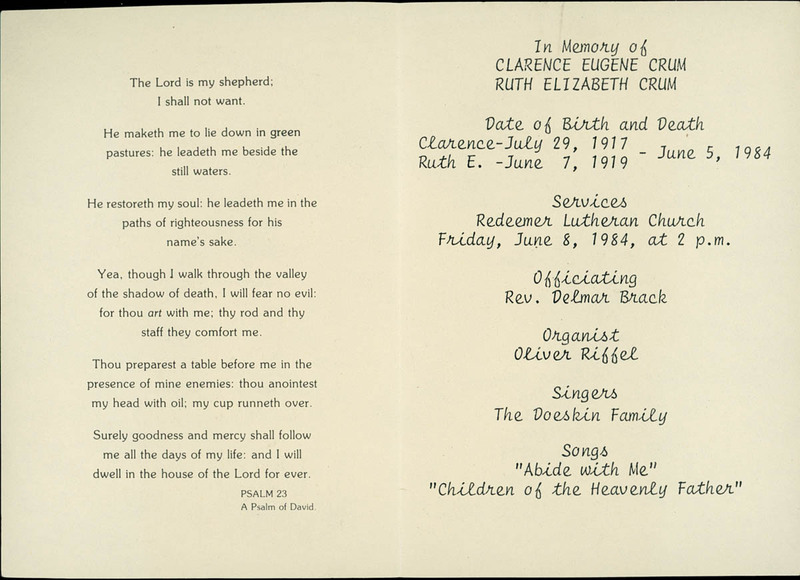 The Lord is my shepherd;
I shall not want.
He maketh me to lie down in green
pastures: he leadeth me beside the
still waters.
He restoreth my soul: he leadeth me in the
paths of righteousness for his
name's sake.
Yea, though I walk through the valley
of the shadow of death, I will fear no evil:
for thou art with me; thy rod and thy
staff they comfort me.
Thou preparest a table before me in the
presence of mine enemies: thou anointest
my head with oil; my cup runneth over.
Surely goodness and mercy shall follow
me all the days of my life: and I will
dwell in the house of the Lord for ever.
PSALM 23
A Psalm of David.
In Memory of
CLARENCE EUGENE CRUM
RUTH ELIZABETH CRUM
Date of Birth and Death
Clarence-July 29, 1917
Ruth E. -June 7, 1919 - June 5, 1984
Services
Redeemer Lutheran Church
Friday, June 8, 1984, at 2 p.m.
Officiating
Rev. Delmar Brack
Organist
Oliver Riffel
Singers
The Doeskin Family
Songs
"Abide with Me"
"Children of the Heavenly Father"